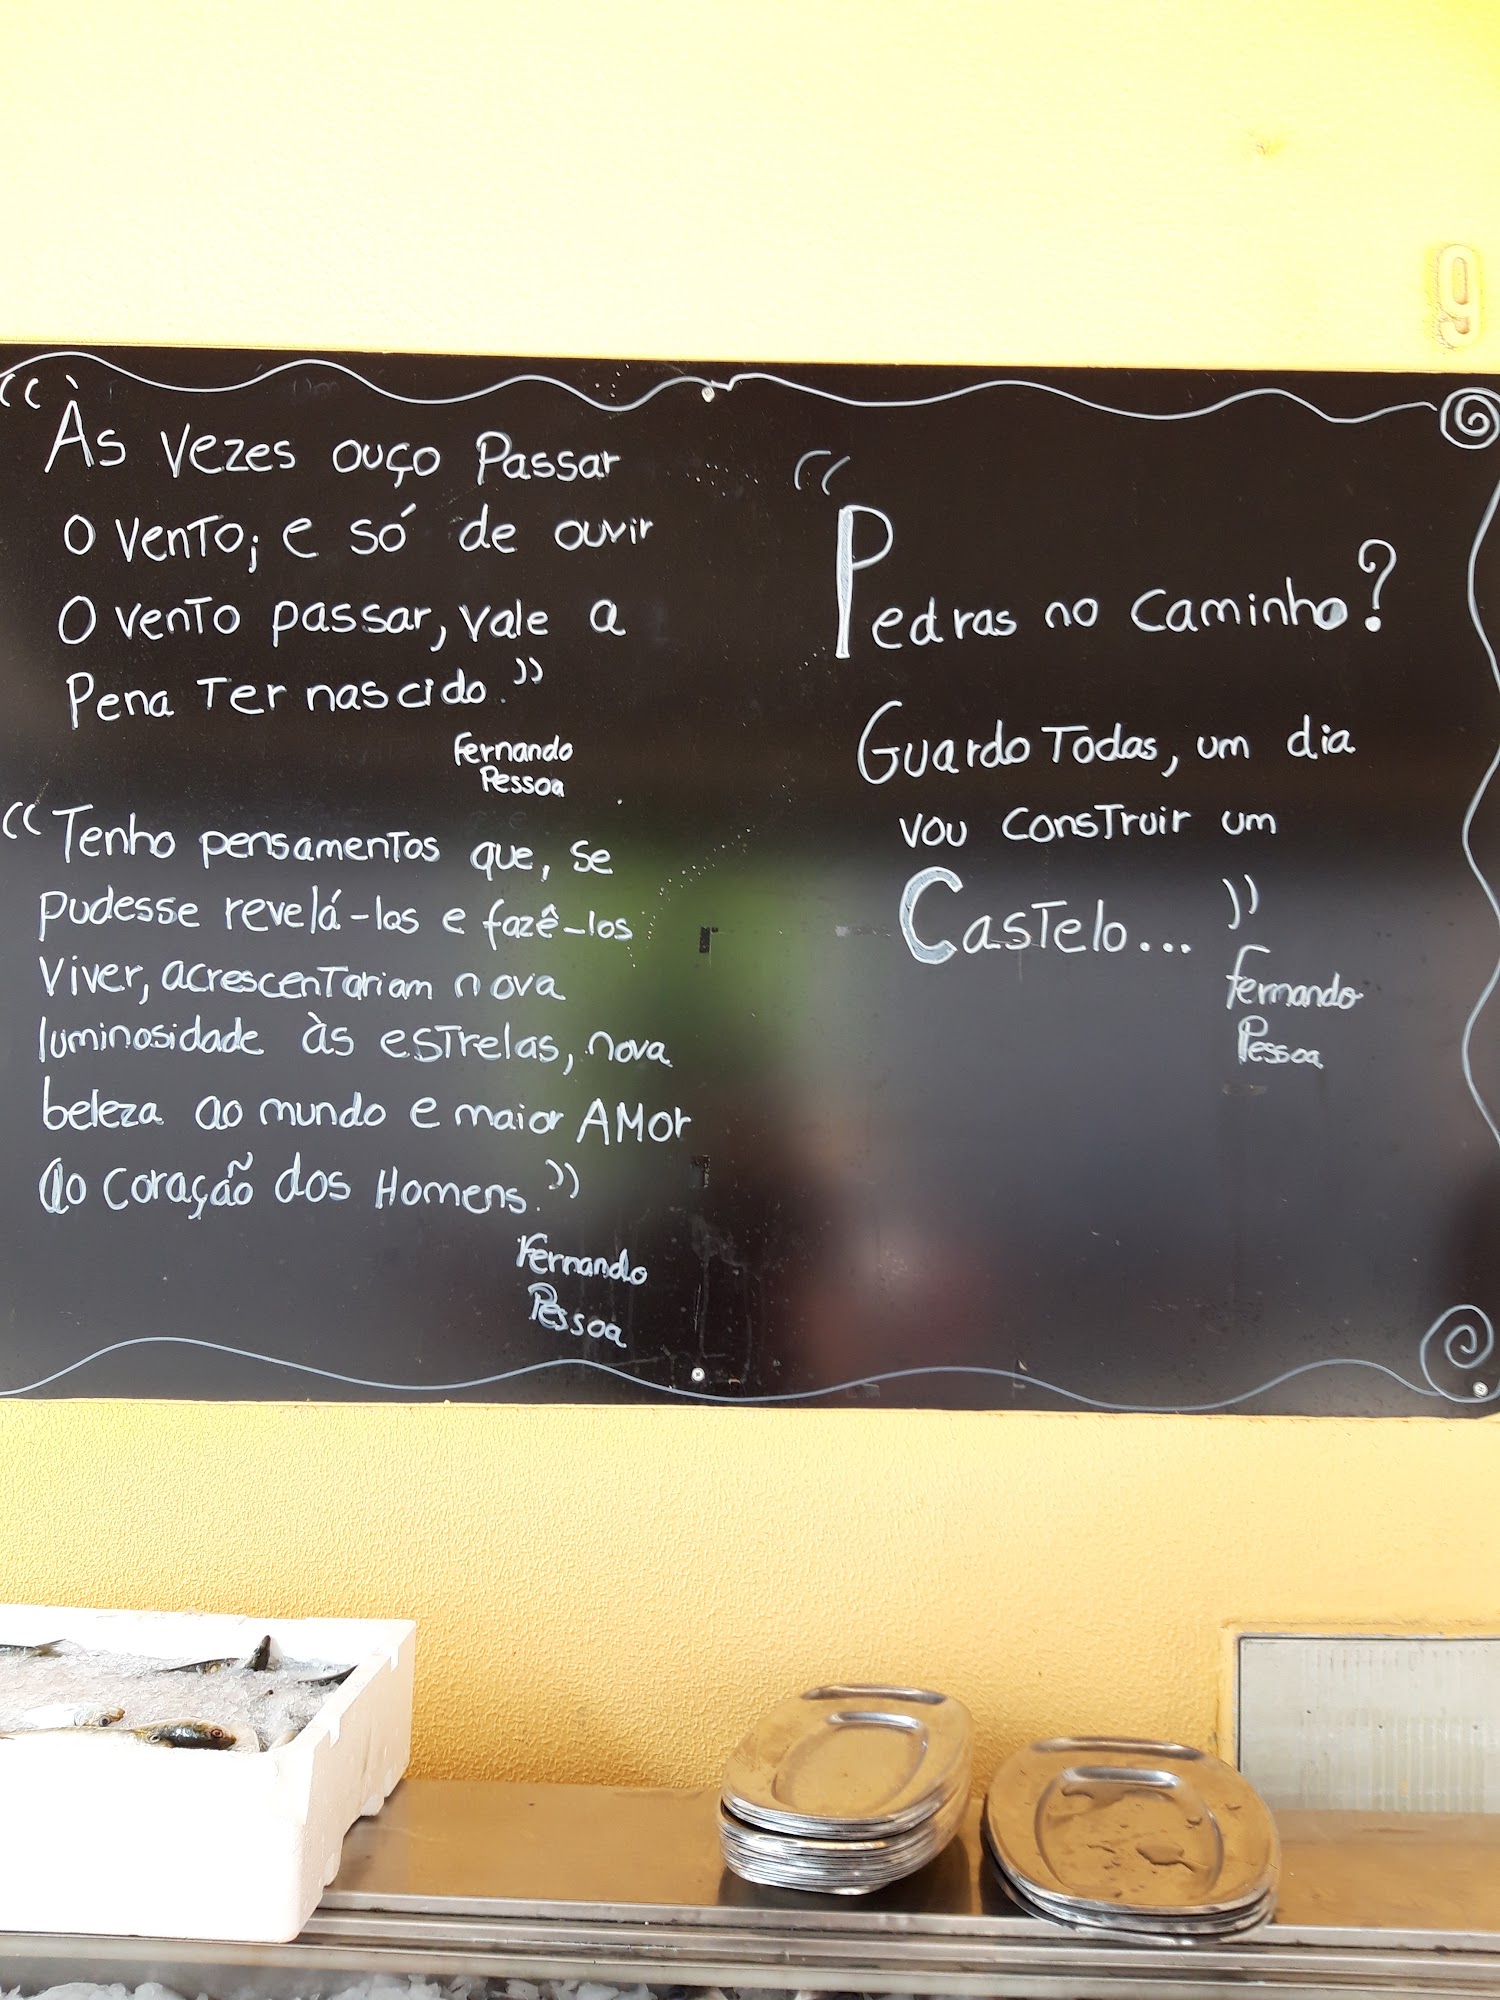 “Às vezes ouço Passar
o vento; e só de ouvir
o vento passar, vale a
Pena Ter nascido.”
Fernando
Pessoa
“Tenho pensamentos que, se
pudesse revelá-los e fazê-los
viver, acrescentariam nova
luminosidade às estrelas, nova
beleza ao mundo e maior AMor
ao coração dos Homens.”
Fernando
Pessoa
“Pedras no caminho?
Guardo Todas, um dia
vou construir um
Castelo...”
Fernando
Pessoa
9